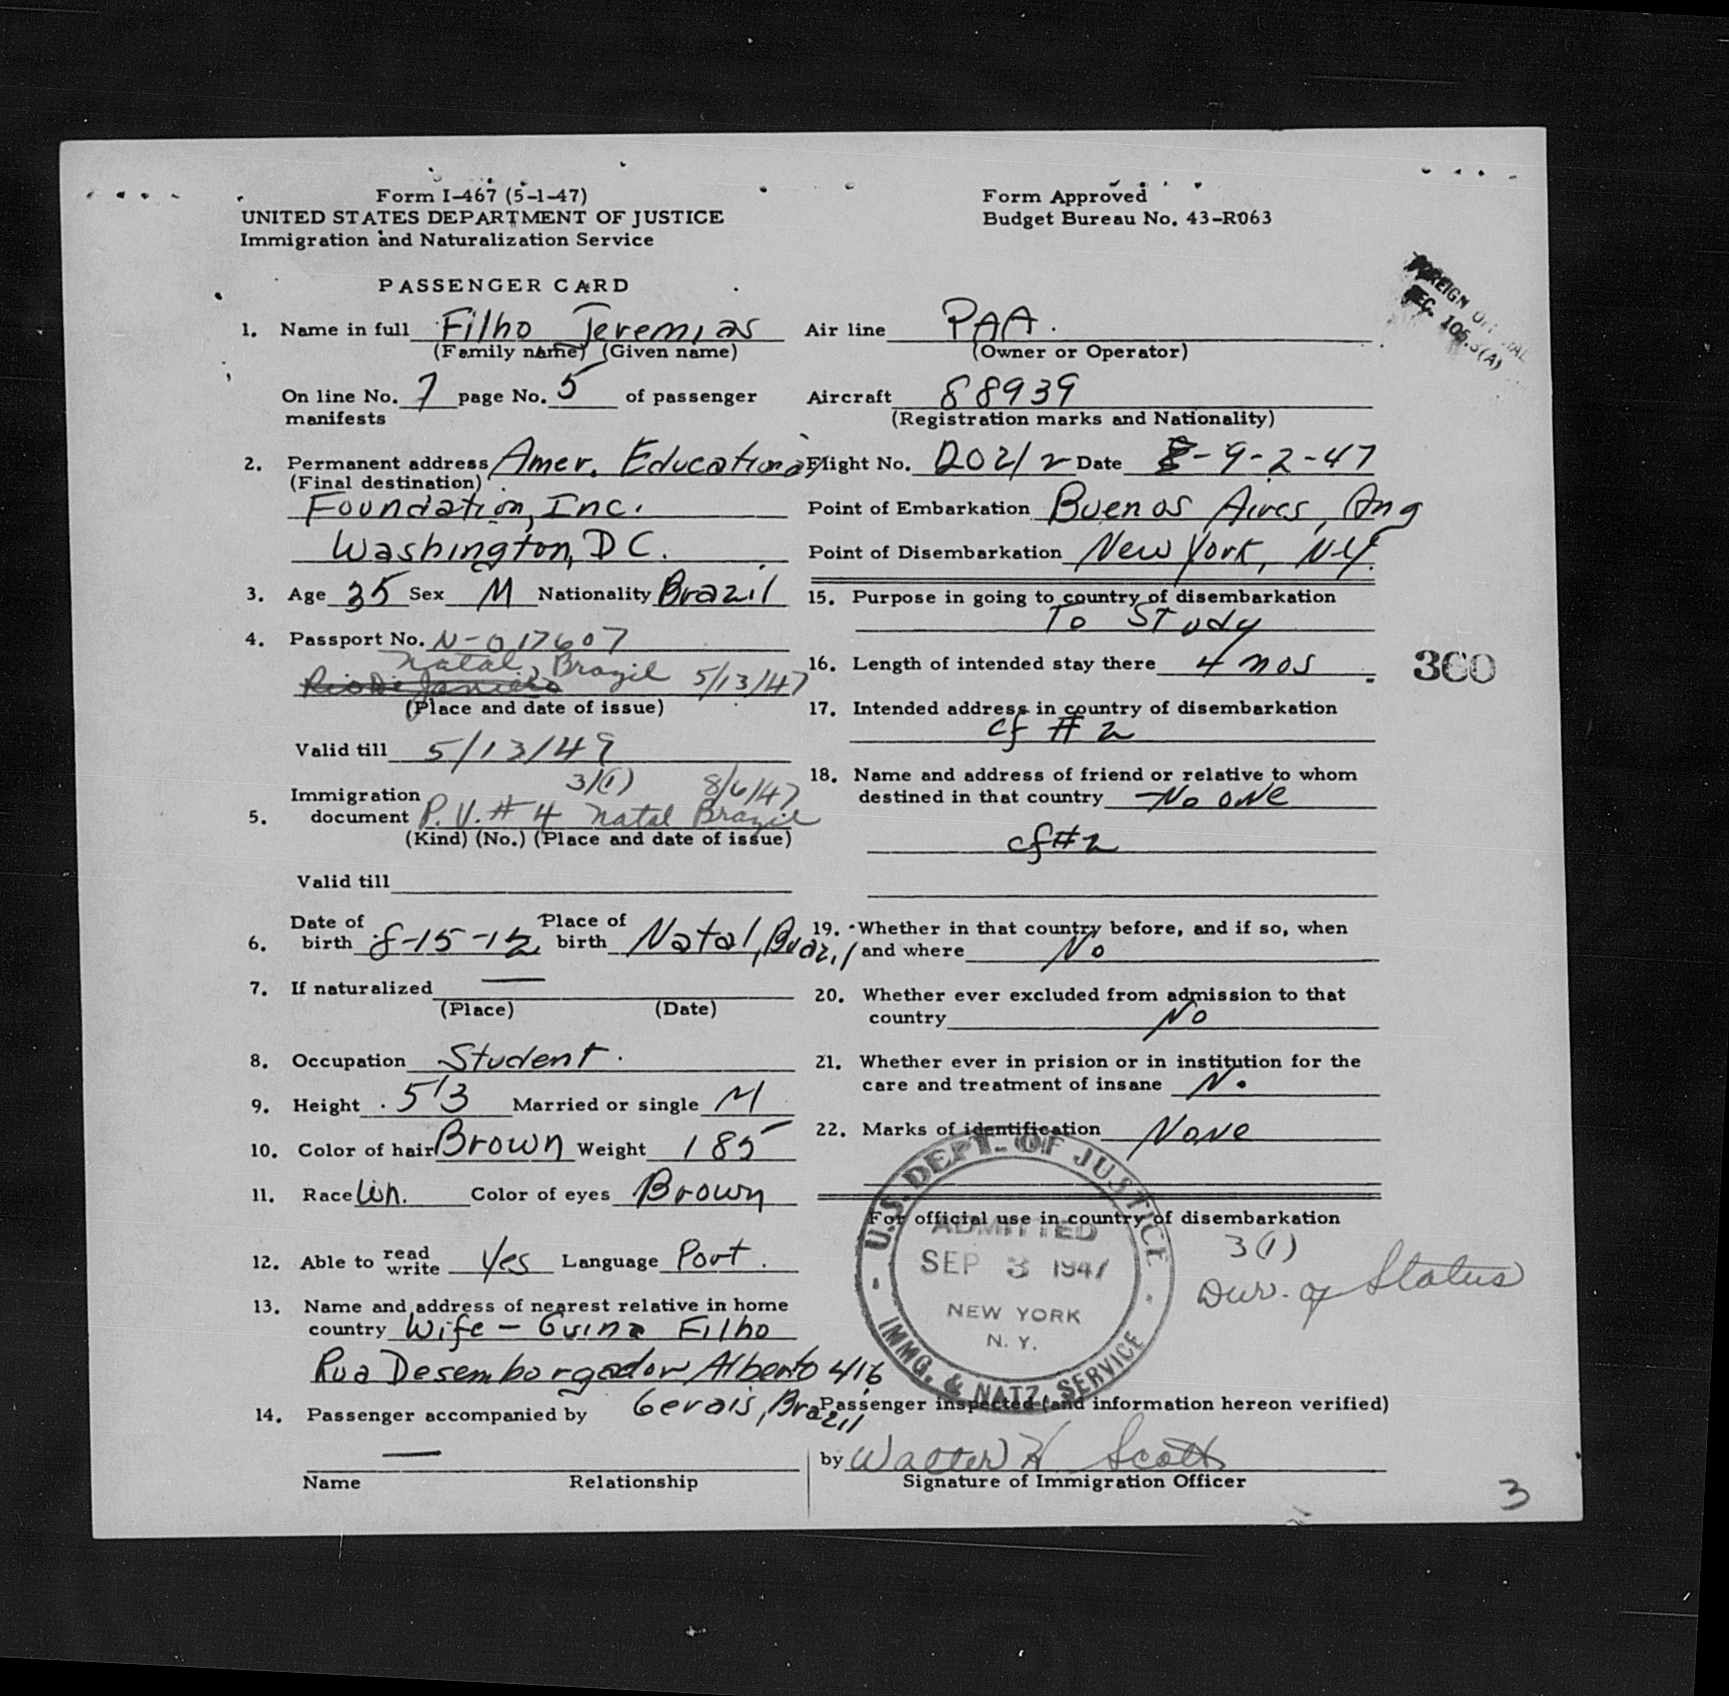 Form I-467 (5-1-47)
UNITED STATES DEPARTMENT OF JUSTICE
Immigration and Naturalization Service
Form Approved
Budget Bureau No. 43-R063
PASSENGER CARD
FOREIGN
SEC. 105.3(A)
1. Name in full Filho Jeremias
(Family name) (Given name)
On line No. 7 page No. 5 of passenger
manifests
2. Permanent address Amer. Educational
(Final destination)
Foundation, Inc.
Washington, D C.
3. Age 35 Sex M Nationality Brazil
4. Passport No. N-017607
Natal, Brazil 5/13/47
Rio De Janiero
(Place and date of issue)
Valid till 5/13/49
3/(1) 8/6/47
Immigration
5. document P.V. # 4 Natal Brazil
(Kind) (No.) (Place and date of issue)
Valid till
6. Date of birth 8-15-12 Place of birth Natal, Brazil
7. If naturalized —
(Place) (Date)
8. Occupation Student.
9. Height 5'3 Married or single M
10. Color of hair Brown Weight 185
11. Race Wh. Color of eyes Brown
12. Able to read write Yes Language Port.
13. Name and address of nearest relative in home
country Wife - Guina Filho
Rua Desemborgador Alberto 416
Gerais, Brazil
14. Passenger accompanied by
—
Name Relationship
Air line PAA.
(Owner or Operator)
Aircraft 88939
(Registration marks and Nationality)
Flight No. 202/2 Date 9-2-47
Point of Embarkation Buenos Aires, Arg
Point of Disembarkation New York, N.Y.
15. Purpose in going to country of disembarkation
To Study
16. Length of intended stay there 4 mos
360
17. Intended address in country of disembarkation
cf # 2
18. Name and address of friend or relative to whom
destined in that country No one
cf # 2
19. Whether in that country before, and if so, when
and where No
20. Whether ever excluded from admission to that
country No
21. Whether ever in prision or in institution for the
care and treatment of insane No
22. Marks of identification None
For official use in country of disembarkation
3(1)
Dur. of Status
U.S. DEPT. OF JUSTICE
ADMITTED
SEP 3 1947
NEW YORK
N. Y.
IMMG. & NATZ. SERVICE
Passenger inspected (and information hereon verified)
by Walter H Scott
Signature of Immigration Officer
3